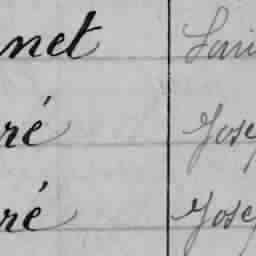 net Loui
ré Jose
ré Jose